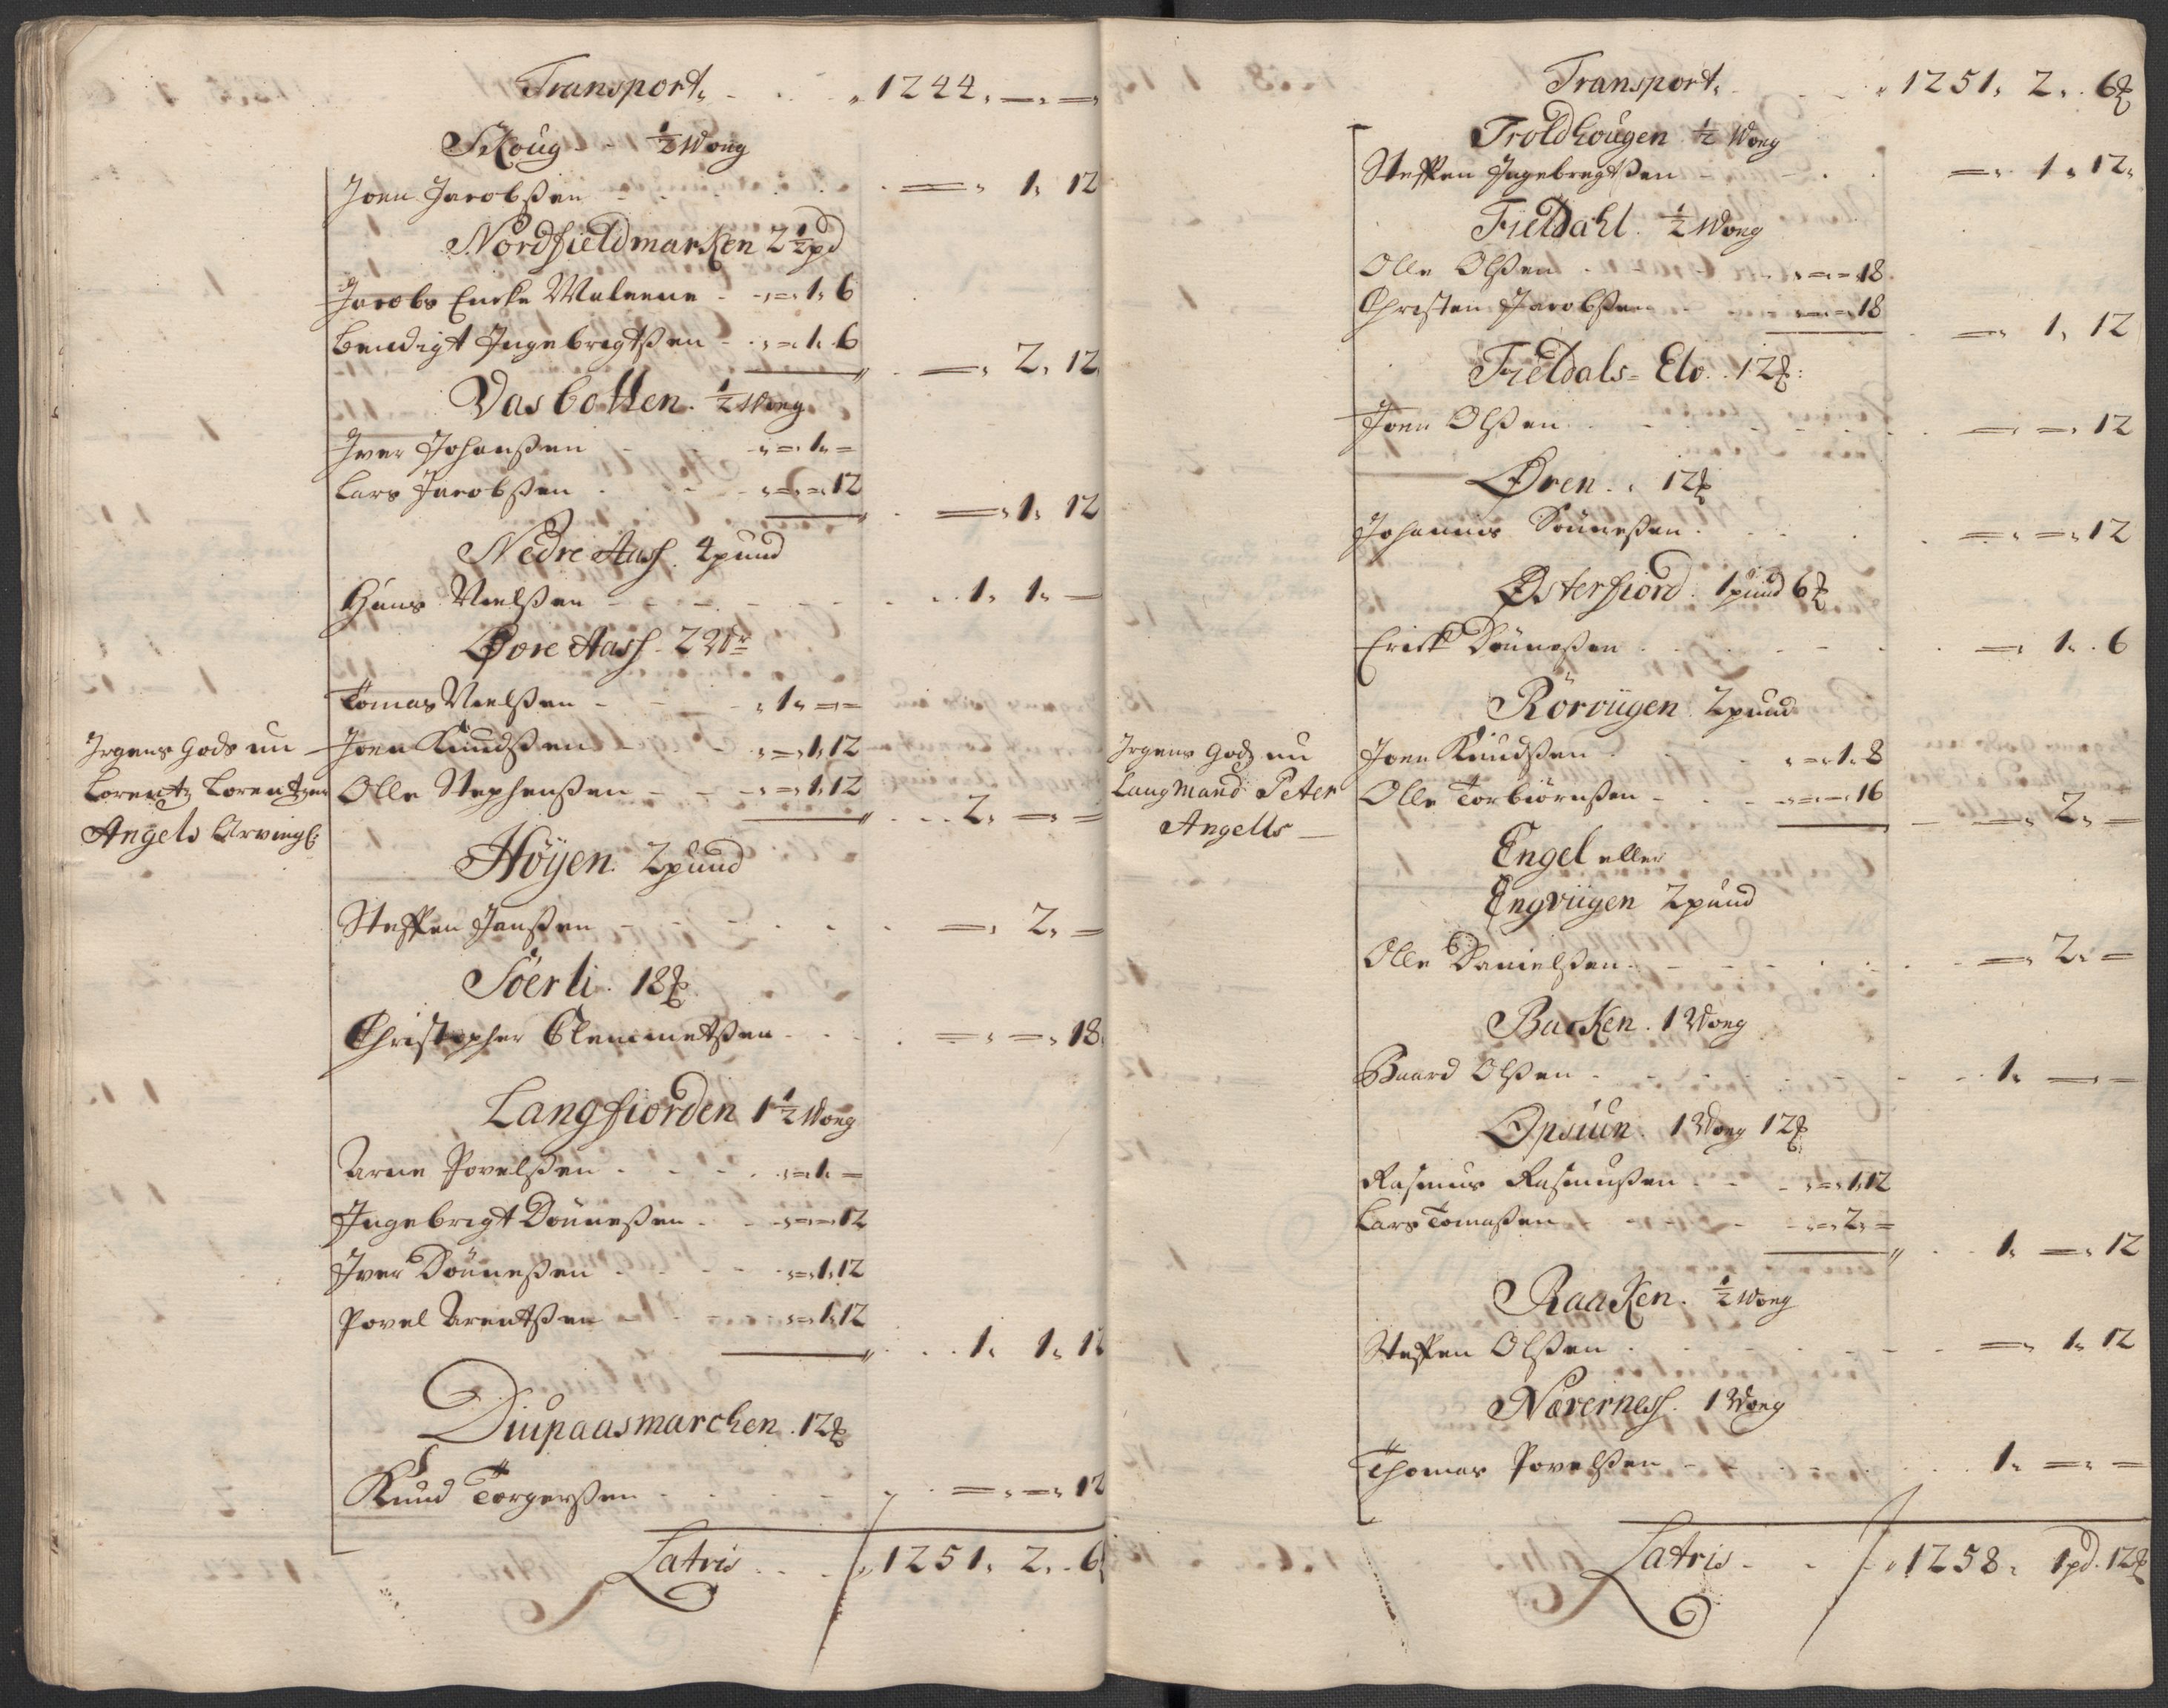 Transport. - . . „ 1244. —. —.
Skoug - - ½ Woug
Joen Jacobßen - - - . . . —. 1. 12
Nordfieldmarken 2½ pd
Jacobs Encke Maleene - . —. 1. 6
Bendigt Ingebregtßen - . —. 1. 6
—. 2. 12.
Vasbotten. ½ Woug
Iver Johanßen - - . —. 1. —
Lars Jacobßen . - - . —. —. 12
—. 1. 12
Nedre Aasf. 4 pund
Hans Nielßen - - - - - . . 1. 1. —
Øvre Aasf - 2 Wr
Tomas Nielßen - - . 1. —. —
Joen Knudßen - . —. 1. 12
Olle Stephenßen - - . —. 1. 12
Irgens Gods nu
Lorentz Lorentzen
Angels Arving:
. . . 2. —. —
Høyen. 2 pund
Steffen Janßen - - - . . . —. 2. —
Söerli. 18 ℔
Christopher Clemmetßen - . . . —. —. 18.
Langfiorden 1½ Woug
Arne Povelßen . - - . —. 1. —
Ingebrigt Dönneßen . - . —. —. 12
Iver Dönneßen - - . —. 1. 12
Povel Arentßen - - . —. 1. 12
. . . 1. 1. 12
Diupaasmarchen. 12 ℔
Knud Torgerßen - . . . —. —. 12
Latris . . . „ 1251. 2. . 6
Transport. - . . „ 1251. 2. . 6 ℔
Troldhougen ½ Woug
Steffen Ingebregtßen - - . . —. 1. 12.
Fieldahl. ½ Woug
Olle Olßen . - . —. —. 18.
Christen Jacobßen - . —. —. 18
. —. 1. 12
Fieldals=Elv. 12 ℔:
Joen Olßen . - . . . —. —. 12
Øren. . 12 ℔
Johannis Dönneßen . . . . —. —. 12
Østerfiord. 1 pund 6 ℔
Erick Dönneßen . . . . —. 1. . 6
Rörviigen. 2 pund
Joen Knudßen . . . —. 1. 8
Olle Torbiörnßen - . . —. —. 16
Irgens Gods nu
Laugmand Peter
Angells —
- —. 2. —
Engel eller
Engviigen 2 pund
Olle Danielßen. - - - . . . —. 2. —
Backen. 1 Woug
Baard Olßen . - - . . . 1. —. —
Opsiun. 1 Woug 12 ℔
Rasmus Rasmußen - - . —. 1. 12
Lars Tomaßen - - . —. 2. —
. . 1. —. 12
Raaken. ½ Woug
Steffen Olßen . . . - —. 1. 12
Nærernesf. 1 Woug
Thomas Povelßen - - . . 1. —. —
Latris - - . „ 1258. 1 pd. 12 ℔